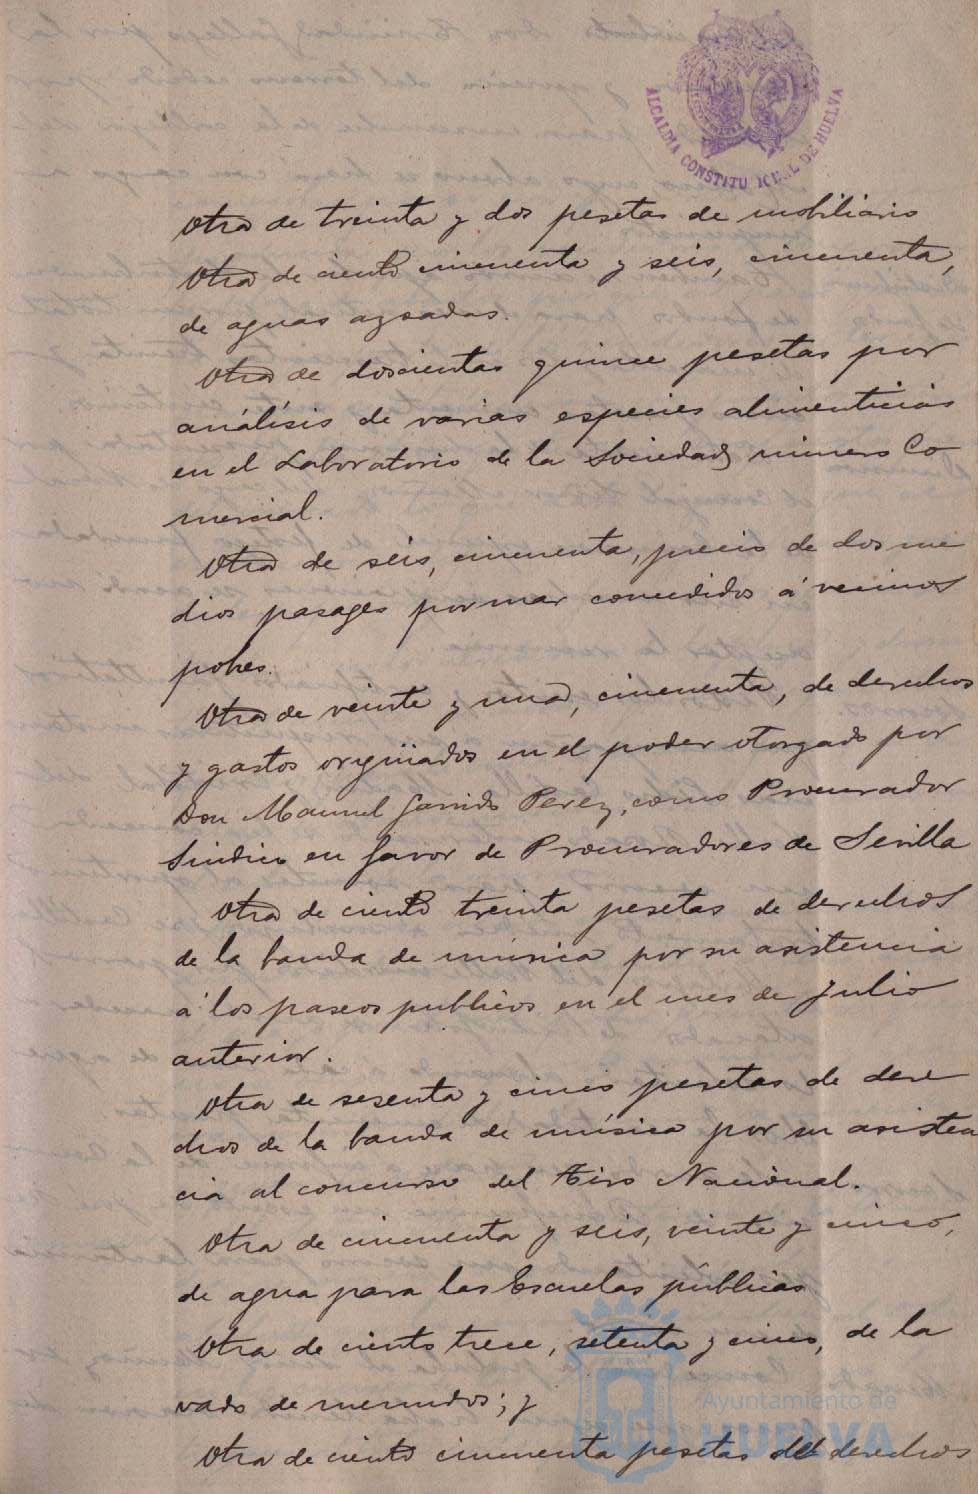 ALCALDIA CONSTITU NAL DE HUELVA
Otra de treinta y dos pesetas de mobiliario
Otra de ciento cincuenta y seis, cincuenta,
de aguas azoadas.
Otra de doscientas quince pesetas por
análisis de varias especies alimenticias
en el Laboratorio de la Sociedad minero Co
mercial.
Otra de seis, cincuenta, precio de dos me
dios pasages por mar concedidos á vecinos
pobres.
Otra de veinte y una, cincuenta, de derechos
y gastos originados en el poder otorgado por
Don Manuel Garrido Perez, como Procurador
Sindico en favor de Procuradores de Sevilla
Otra de ciento treinta pesetas de derechos
de la banda de música por su asistencia
á los paseos publicos en el mes de Julio
anterior.
Otra de sesenta y cinco pesetas de dere
chos de la banda de música por su asisten
cia al concurso del Tiro Nacional.
Otra de cincuenta y seis, veinte y cinco,
de agua para las Escuelas públicas
Otra de ciento trece, setenta y cinco, de la
vado de menudos; y
Otra de ciento cincuenta pesetas de derechos
Ayuntamiento de
HUELVA